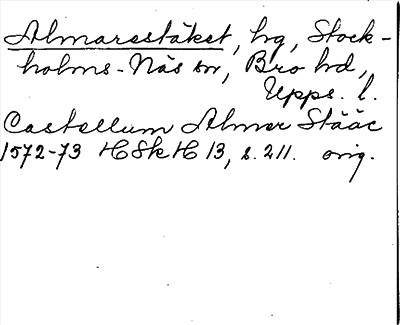 Almarestäket, hg, Stock-
holms-Näs sn, Bro hd,
Upps. l.
Castellum Almer Stääc
1572-73 HSkH 13, s. 211. orig.